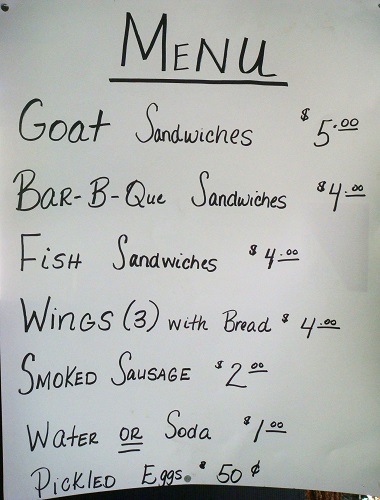 MENU
Goat Sandwiches $5.00
BAR-B-Que Sandwiches $4.00
FISH Sandwiches $4.00
WINGS (3) with Bread $4.00
SMOKED SAUSAGE $2.00
WATER OR Soda $1.00
PICKLED Eggs. $50¢